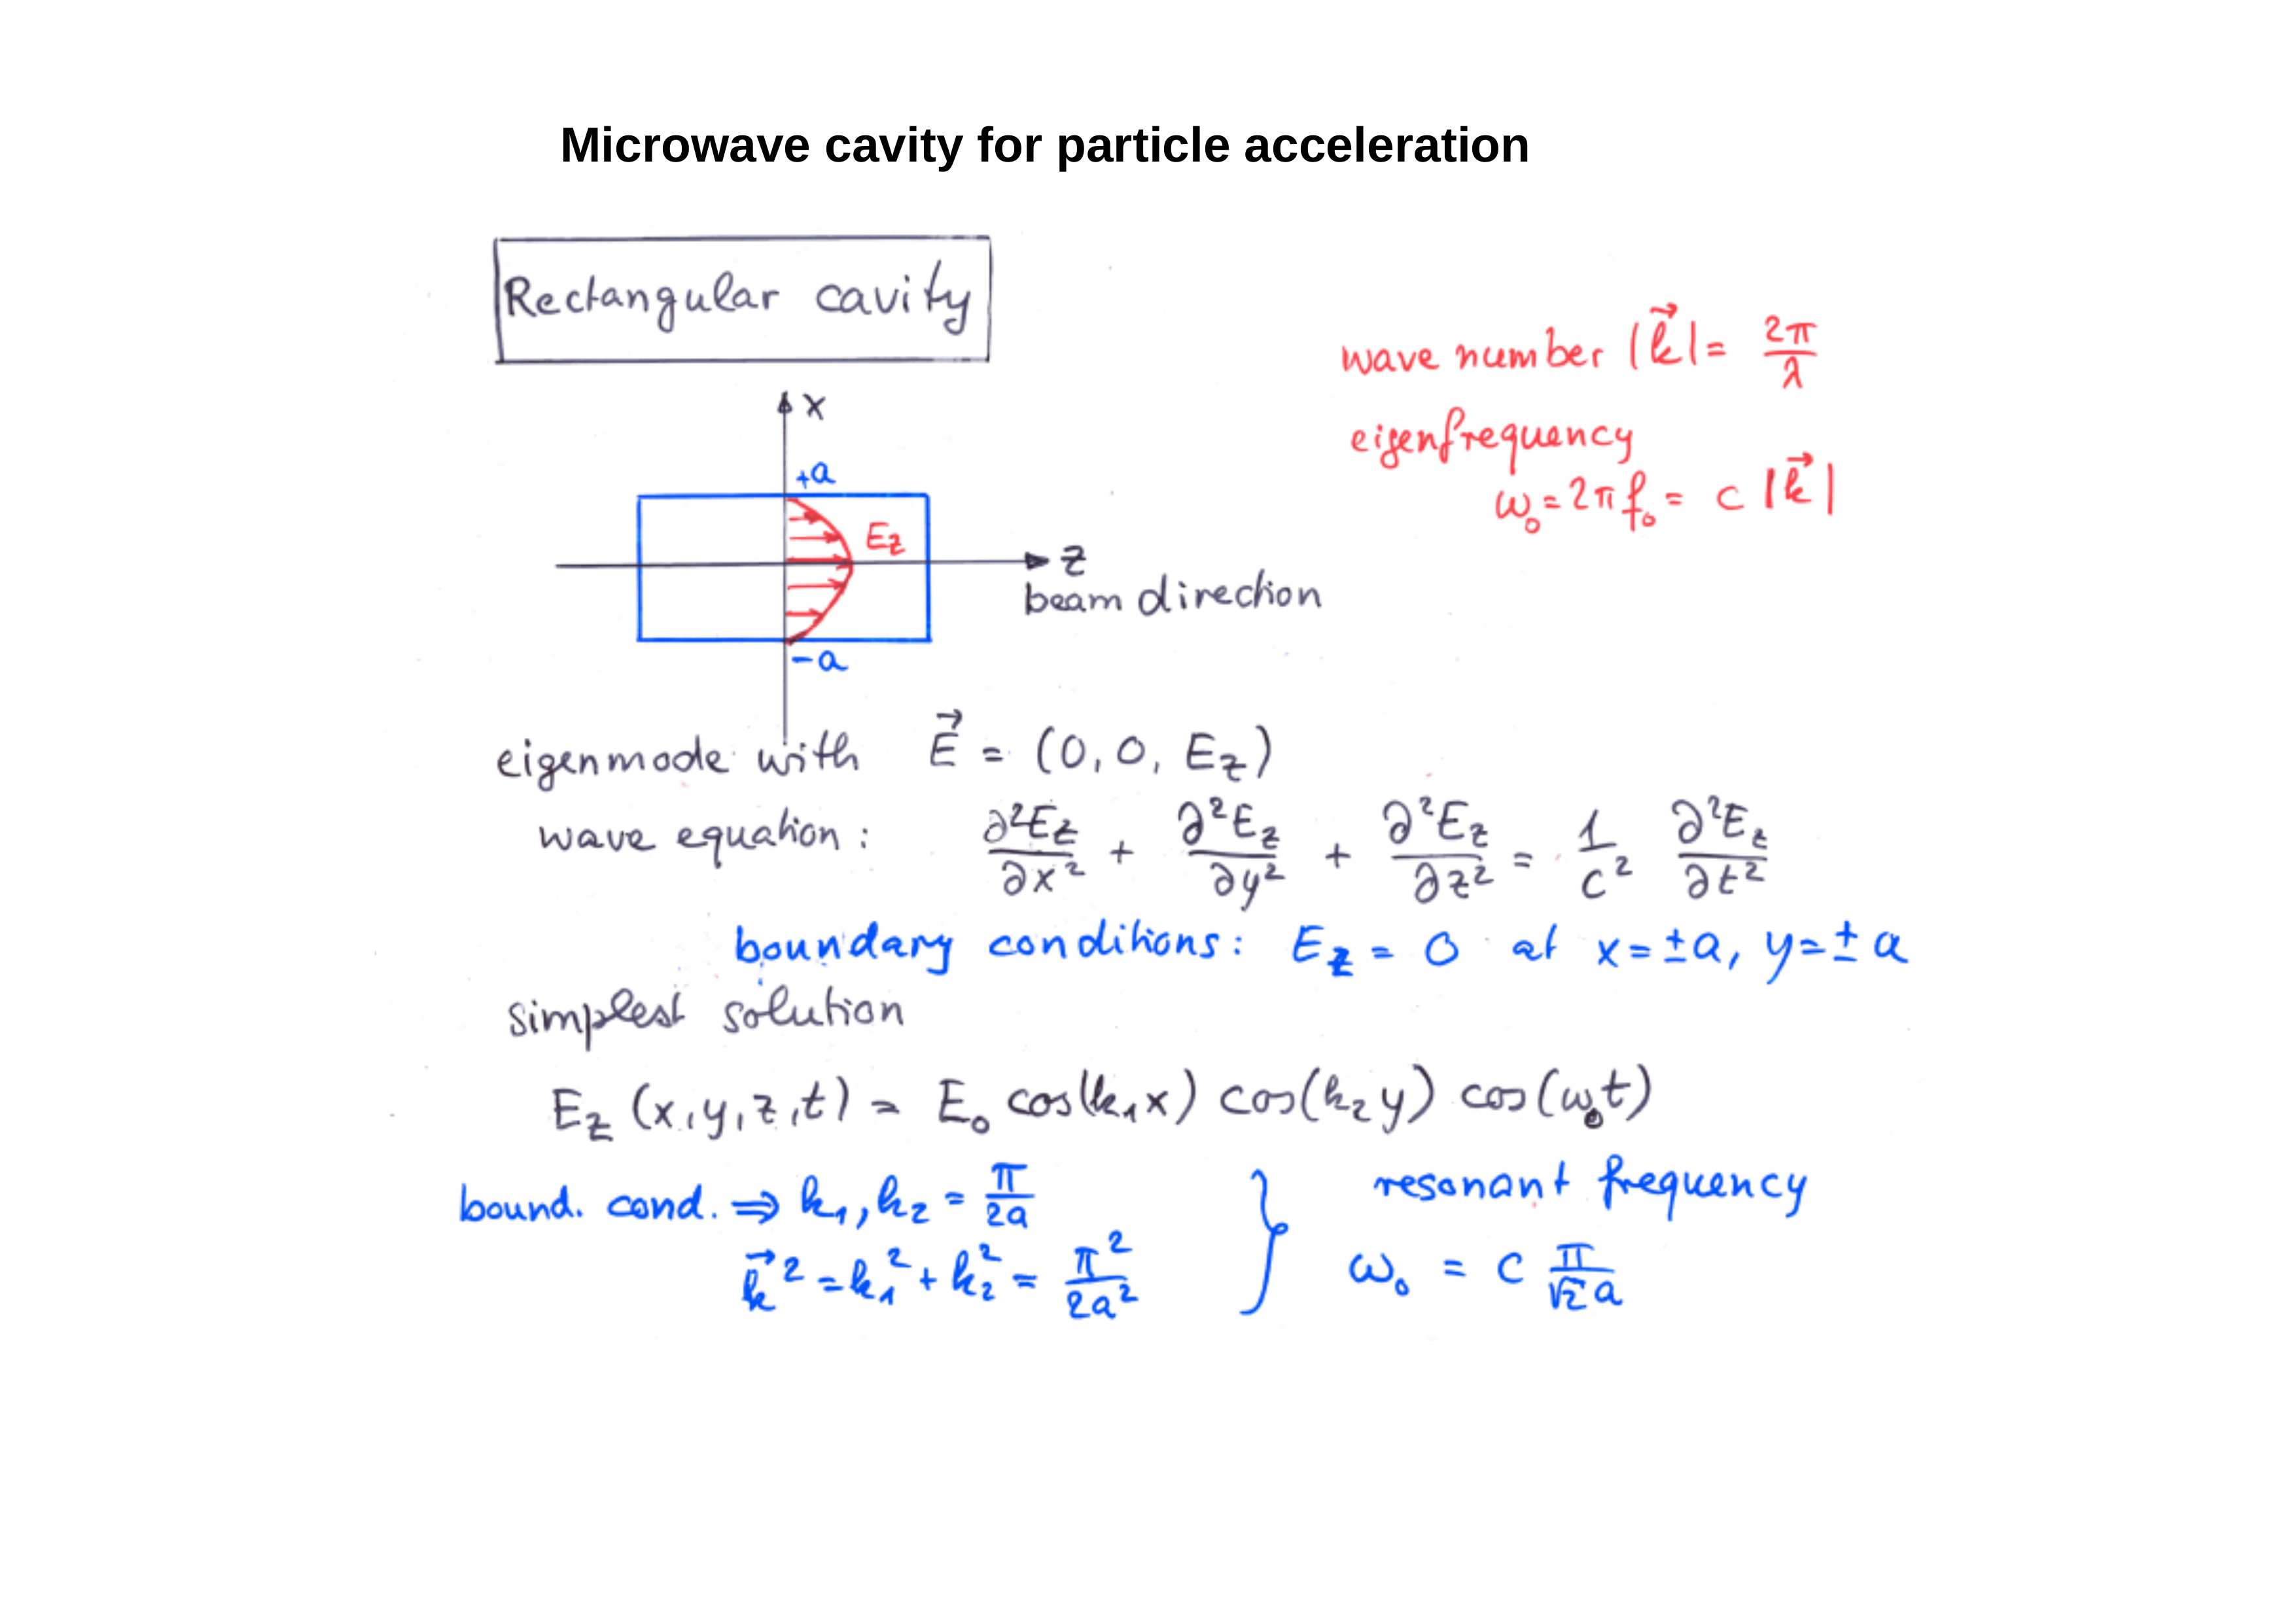 Microwave cavity for particle acceleration
Rectangular cavity
wave number |k⃗| = 2π/λ
eigenfrequency
ω₀ = 2πf₀ = c |k⃗|
x
+a
Ez
z
beam direction
-a
eigenmode with E⃗ = (0, 0, Ez)
wave equation: ∂²Ez/∂x² + ∂²Ez/∂y² + ∂²Ez/∂z² = 1/c² ∂²Ez/∂t²
boundary conditions: Ez = 0 at x = ±a, y = ±a
simplest solution
Ez (x, y, z, t) = E₀ cos(k₁x) cos(k₂y) cos(ω₀t)
bound. cond. ⇒ k₁, k₂ = π/2a
k⃗² = k₁² + k₂² = π²/2a²
resonant frequency
ω₀ = c π/√2 a